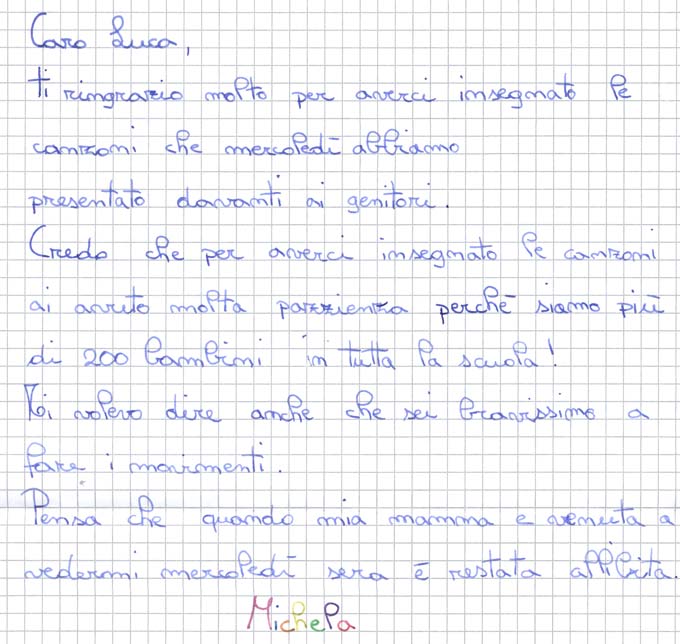 Caro Luca,
ti ringrazio molto per averci insegnato le
canzoni che mercoledì abbiamo
presentato davanti ai genitori.
Credo che per averci insegnato le canzoni
ai avuto molta pazzienza perchē siamo più
di 200 bambini in tutta la scuola!
Ti volevo dire anche che sei bravissimo a
fare i movimenti.
Pensa che quando mia mamma e venuta a
vedermi mercoledì sera ē restata allibita.
Michela